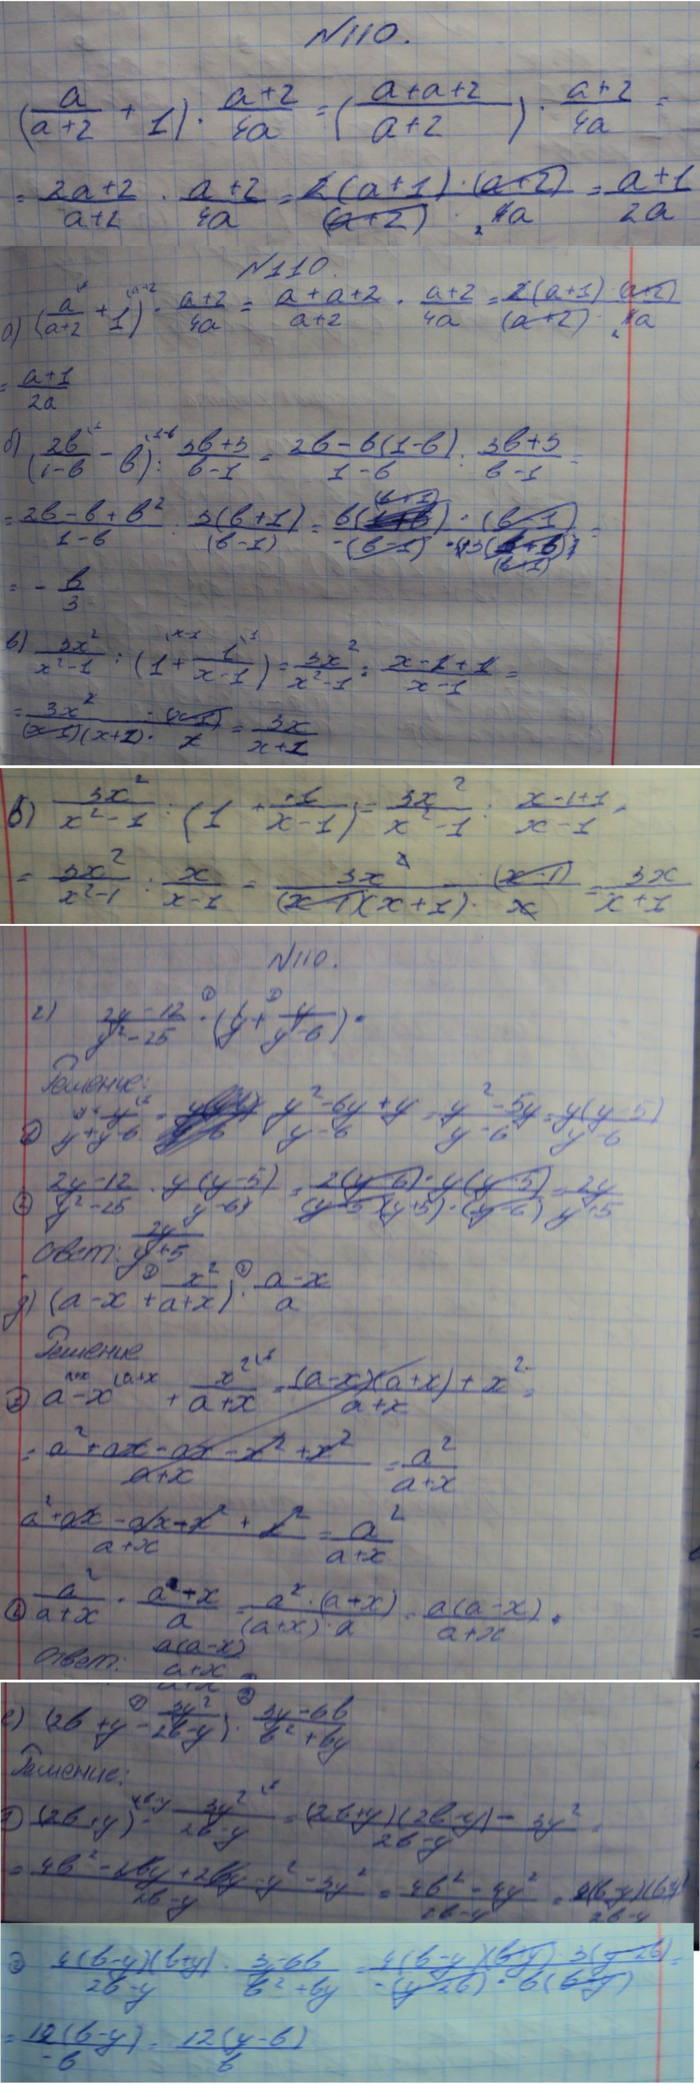 N110.
(a/(a+2) + 1) · (a+2)/4a = ((a+a+2)/(a+2)) · (a+2)/4a =
= (2a+2)/(a+2) · (a+2)/4a = 2(a+1)·(a+2)/((a+2)·4a) = (a+1)/2a
N110.
а) (a/(a+2) + 1) · (a+2)/4a = (a+a+2)/(a+2) · (a+2)/4a = 2(a+1)·(a+2)/((a+2)·4a)
= (a+1)/2a
б) (2в/(1-в) - в) : (3в+3)/(в-1) = (2в-в(1-в))/(1-в) : (3в+3)/(в-1) =
= (2в-в+в²)/(1-в) : 3(в+1)/(в-1) = в(в+1)·(в-1)/(-(в-1)·3(в+1)) =
= - в/3
в) 3x²/(x²-1) : (1 + 1/(x-1)) = 3x²/(x²-1) : (x-1+1)/(x-1) =
= 3x²·(x-1)/((x-1)(x+1)·x) = 3x/(x+1)
в) 3x²/(x²-1) : (1 + 1/(x-1)) = 3x²/(x²-1) : (x-1+1)/(x-1) =
= 3x²/(x²-1) : x/(x-1) = 3x²·(x-1)/((x-1)(x+1)·x) = 3x/(x+1)
N110.
г) (2y-12)/(y²-25) · (y + y/(y-6)) =
Решение:
① y + y/(y-6) = (y²-6y+y)/(y-6) = (y²-5y)/(y-6) = y(y-5)/(y-6)
② (2y-12)/(y²-25) · y(y-5)/(y-6) = 2(y-6)·y(y-5)/((y-5)(y+5)·(y-6)) = 2y/(y+5)
Ответ: 2y/(y+5)
д) (a-x + x²/(a+x)) · (a-x)/a
Решение
① a-x + x²/(a+x) = ((a-x)(a+x)+x²)/(a+x) =
= (a²+ax-ax-x²+x²)/(a+x) = a²/(a+x)
(a²+ax-ax-x²+x²)/(a+x) = a²/(a+x)
② a²/(a+x) · (a+x)/a = a²·(a+x)/((a+x)·a) = a(a-x)/(a+x).
Ответ: a(a-x)/(a+x)
е) (2в+y - 3y²/(2в-y)) · (3y-6в)/(в²+вy)
Решение:
① (2в+y) - 3y²/(2в-y) = ((2в+y)(2в-y) - 3y²)/(2в-y) =
= (4в²-2вy+2вy-y²-3y²)/(2в-y) = (4в²-4y²)/(2в-y) = 4(в-y)(в+y)/(2в-y)
② 4(в-y)(в+y)/(2в-y) · (3y-6в)/(в²+вy) = 4(в-y)(в+y)·3(y-2в)/(-(y-2в)·в(в+y)) =
= 12(в-y)/(-в) = 12(y-в)/в